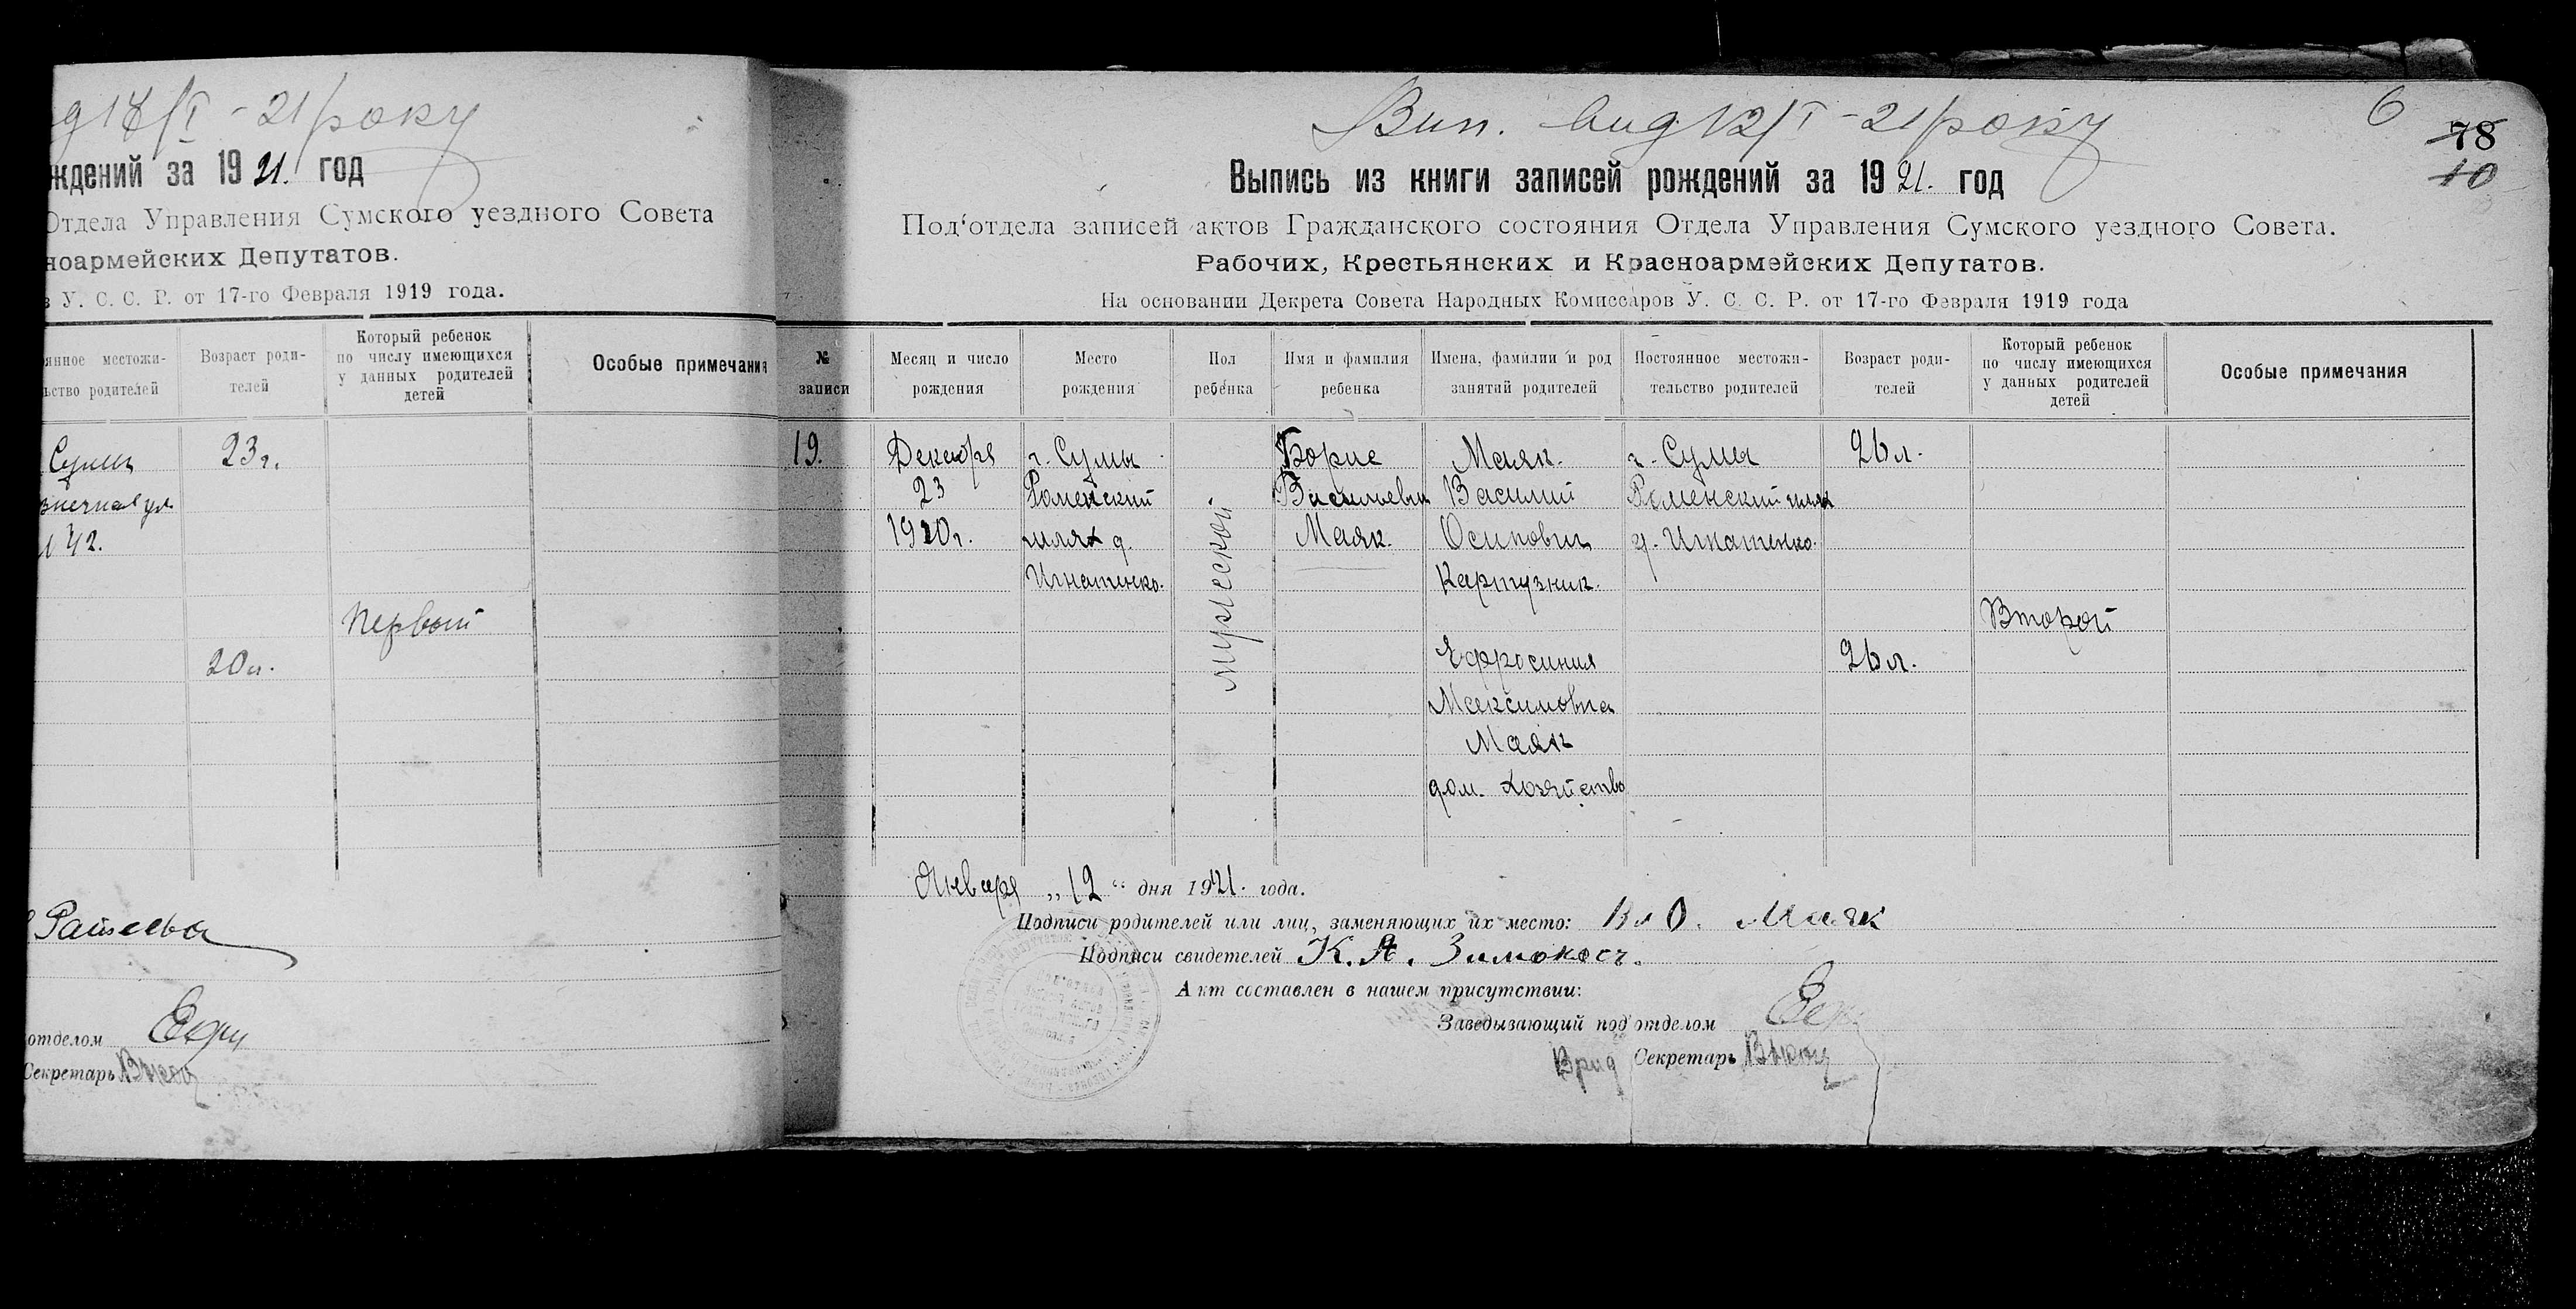 /I - 21 року
ждений за 1921. год
Отдела Управления Сумского уездного Совета
ноармейских Депутатов.
в У. С. С. Р. от 17-го Февраля 1919 года.
янное местожи-
льство родителей
Возраст роди-
телей
Который ребенок
по числу имеющихся
у данных родителей
детей
Особые примечания
Сумы
23 г.
ул.
42.
Первый
20 л.
отделом
Секретарь
Вип. вид 12/I - 21 року
6
78
10
Выпись из книги записей рождений за 1921. год
Под'отдела записей актов Гражданского состояния Отдела Управления Сумского уездного Совета.
Рабочих, Крестьянских и Красноармейских Депутатов.
На основании Декрета Совета Народных Комиссаров У. С. С. Р. от 17-го Февраля 1919 года
№
записи
Месяц и число
рождения
Место
рождения
Пол
ребенка
Имя и фамилия
ребенка
Имена, фамилии и род
занятий родителей
Постоянное местожи-
тельство родителей
Возраст роди-
телей
Который ребенок
по числу имеющихся
у данных родителей
детей
Особые примечания
19.
Декабря
23
1920 г.
г. Сумы
Роменский
шлях д.
Игнатенко.
мужеской
Борис
Васильевич
Маяк.
Маяк.
Василий
Осипович
Картузник.
Ефросиния
Максимовна
Маяк
дом. хозяйство
г. Сумы
Роменский шлях
д. Игнатенко.
26 л.
26 л.
Второй
Января „12“ дня 1921. года.
Подписи родителей или лиц, заменяющих их место: В. О. Маяк
Подписи свидетелей К. Я. Зимокос.
Акт составлен в нашем присутствии:
Заведывающий под'отделом
Врид Секретарь